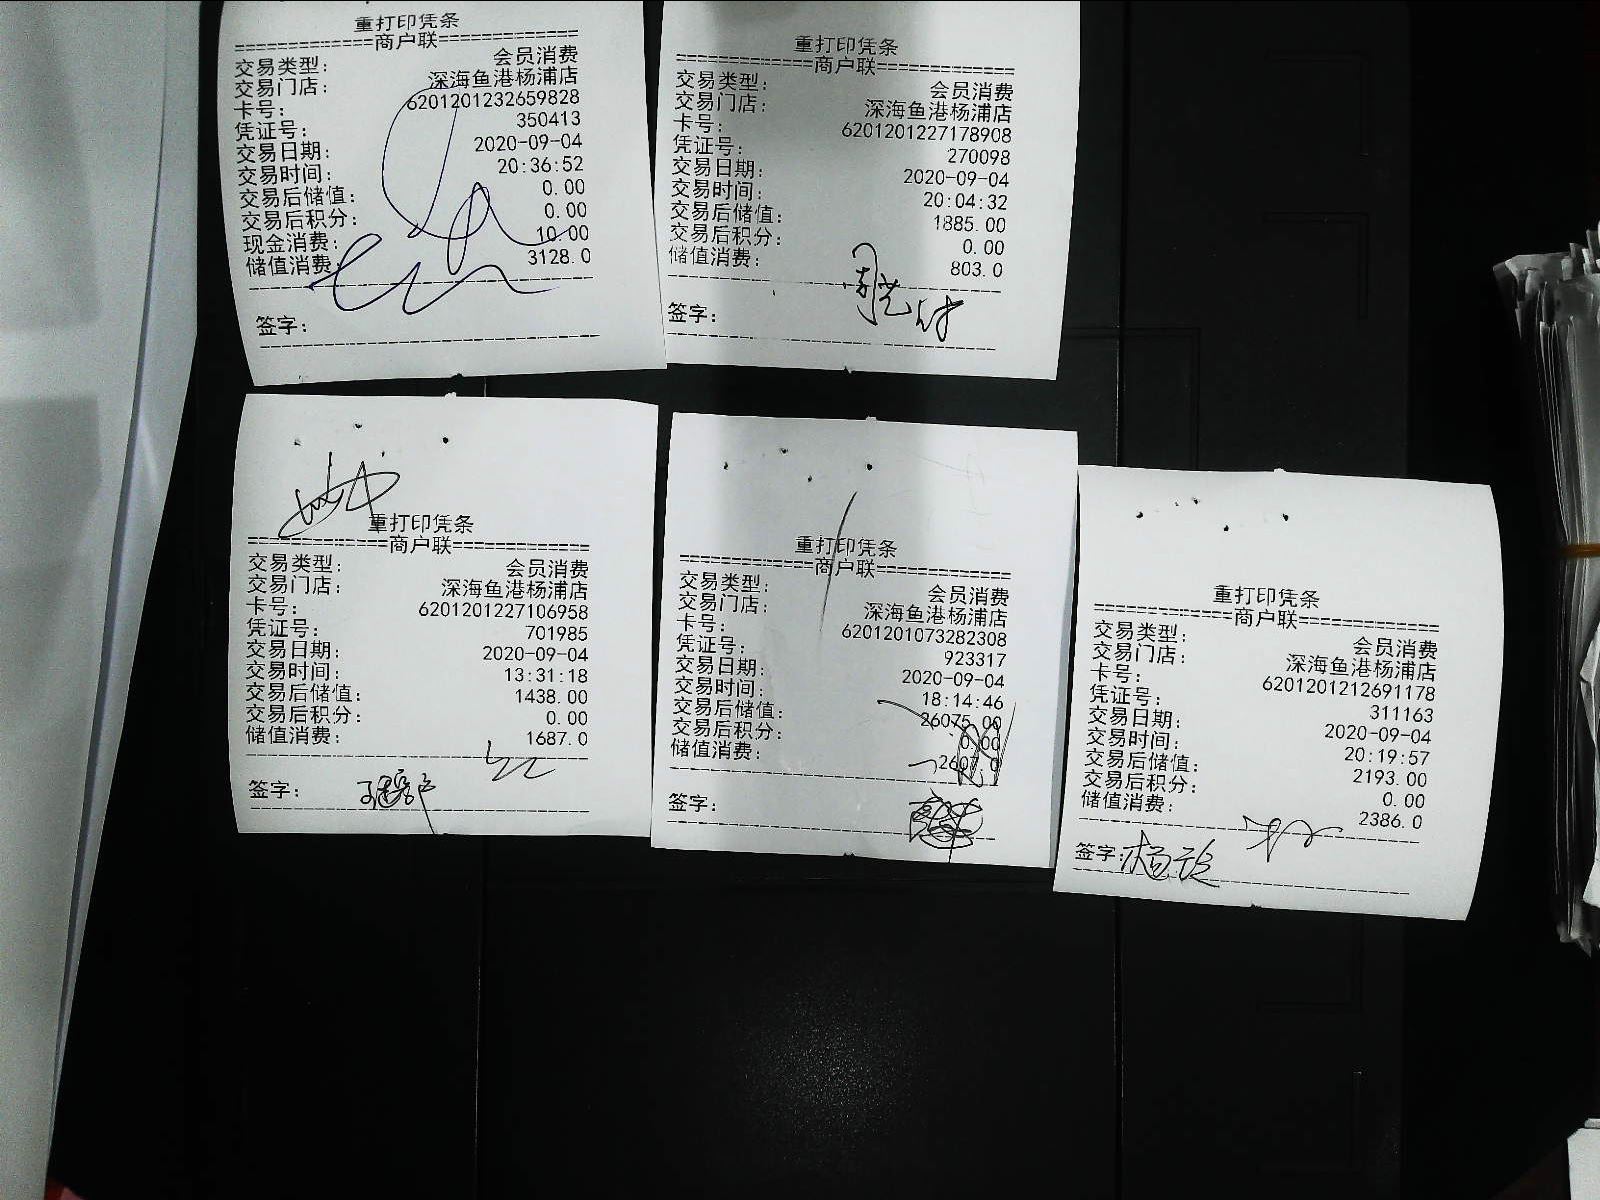 重打印凭条
=============商户联=============
交易类型: 会员消费
交易门店: 深海鱼港杨浦店
卡号: 6201201232659828
凭证号: 350413
交易日期: 2020-09-04
交易时间: 20:36:52
交易后储值: 0.00
交易后积分: 0.00
现金消费: 10.00
储值消费: 3128.0
签字:
重打印凭条
=============商户联=============
交易类型: 会员消费
交易门店: 深海鱼港杨浦店
卡号: 6201201227178908
凭证号: 270098
交易日期: 2020-09-04
交易时间: 20:04:32
交易后储值: 1885.00
交易后积分: 0.00
储值消费: 803.0
签字:
重打印凭条
=============商户联=============
交易类型: 会员消费
交易门店: 深海鱼港杨浦店
卡号: 6201201227106958
凭证号: 701985
交易日期: 2020-09-04
交易时间: 13:31:18
交易后储值: 1438.00
交易后积分: 0.00
储值消费: 1687.0
签字:
重打印凭条
=============商户联=============
交易类型: 会员消费
交易门店: 深海鱼港杨浦店
卡号: 6201201073282308
凭证号: 923317
交易日期: 2020-09-04
交易时间: 18:14:46
交易后储值: 26075.00
交易后积分: 0.00
储值消费:
签字:
重打印凭条
=============商户联=============
交易类型: 会员消费
交易门店: 深海鱼港杨浦店
卡号: 6201201212691178
凭证号: 311163
交易日期: 2020-09-04
交易时间: 20:19:57
交易后储值: 2193.00
交易后积分: 0.00
储值消费: 2386.0
签字: